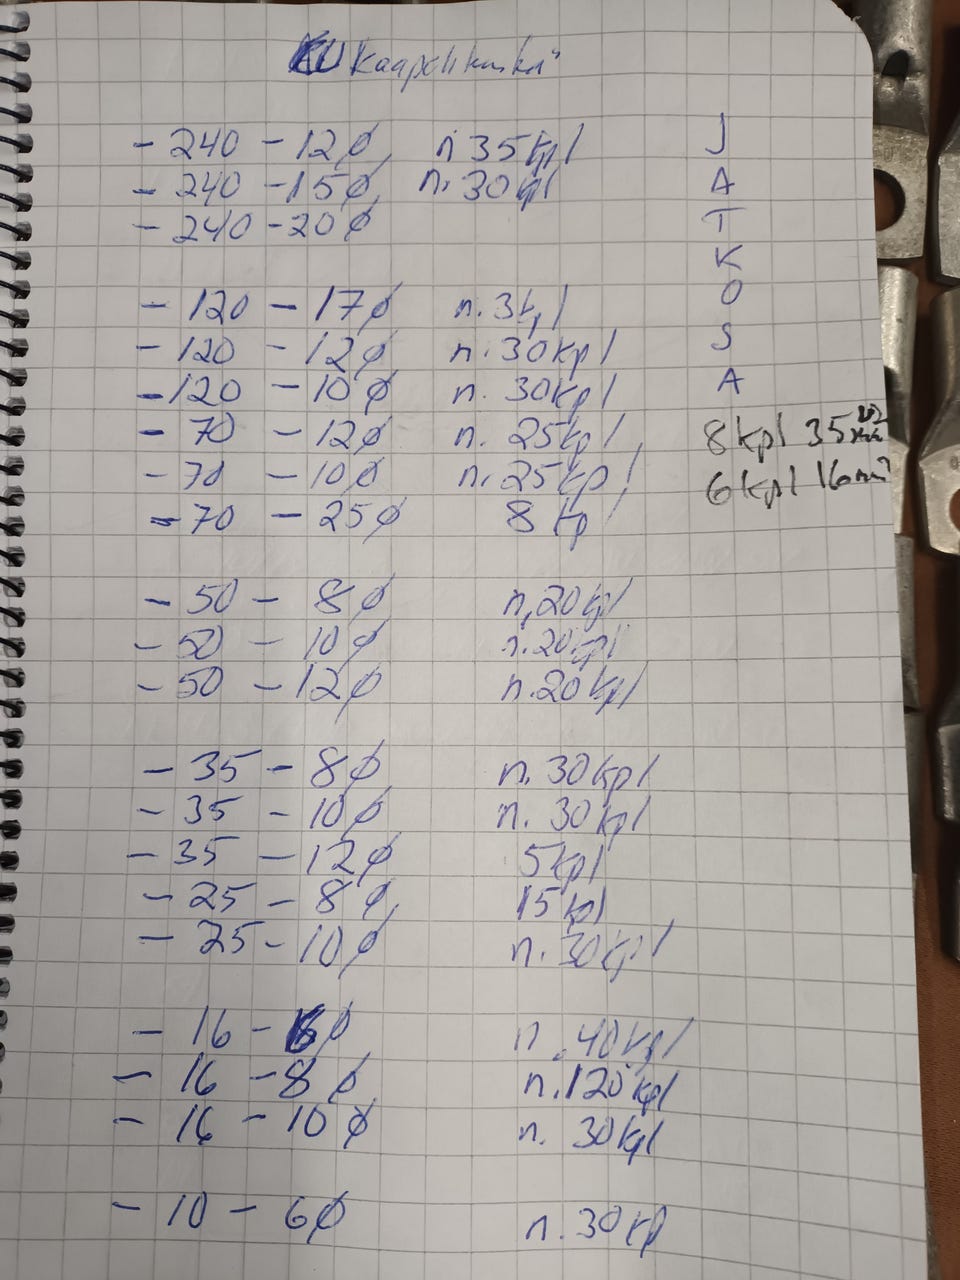 Kaapelikenkiä
- 240 - 12ø n. 35kpl
- 240 - 15ø n. 30kpl
- 240 - 20ø
- 120 - 17ø n. 3kpl
- 120 - 12ø n. 30kpl
- 120 - 10ø n. 30kpl
- 70 - 12ø n. 25kpl
- 70 - 10ø n. 25kpl
- 70 - 25ø 8kp
- 50 - 8ø n. 20kpl
- 50 - 10ø n. 20kpl
- 50 - 12ø n. 20kpl
- 35 - 8ø n. 30kpl
- 35 - 10ø n. 30kpl
- 35 - 12ø 5kpl
- 25 - 8ø 15kpl
- 25 - 10ø n. 30kpl
- 16 - 6ø n. 40kpl
- 16 - 8ø n. 120kpl
- 16 - 10ø n. 30kpl
- 10 - 6ø n. 30kp
J
A
T
K
O
S
A
8kpl 35
6kpl 16mm²